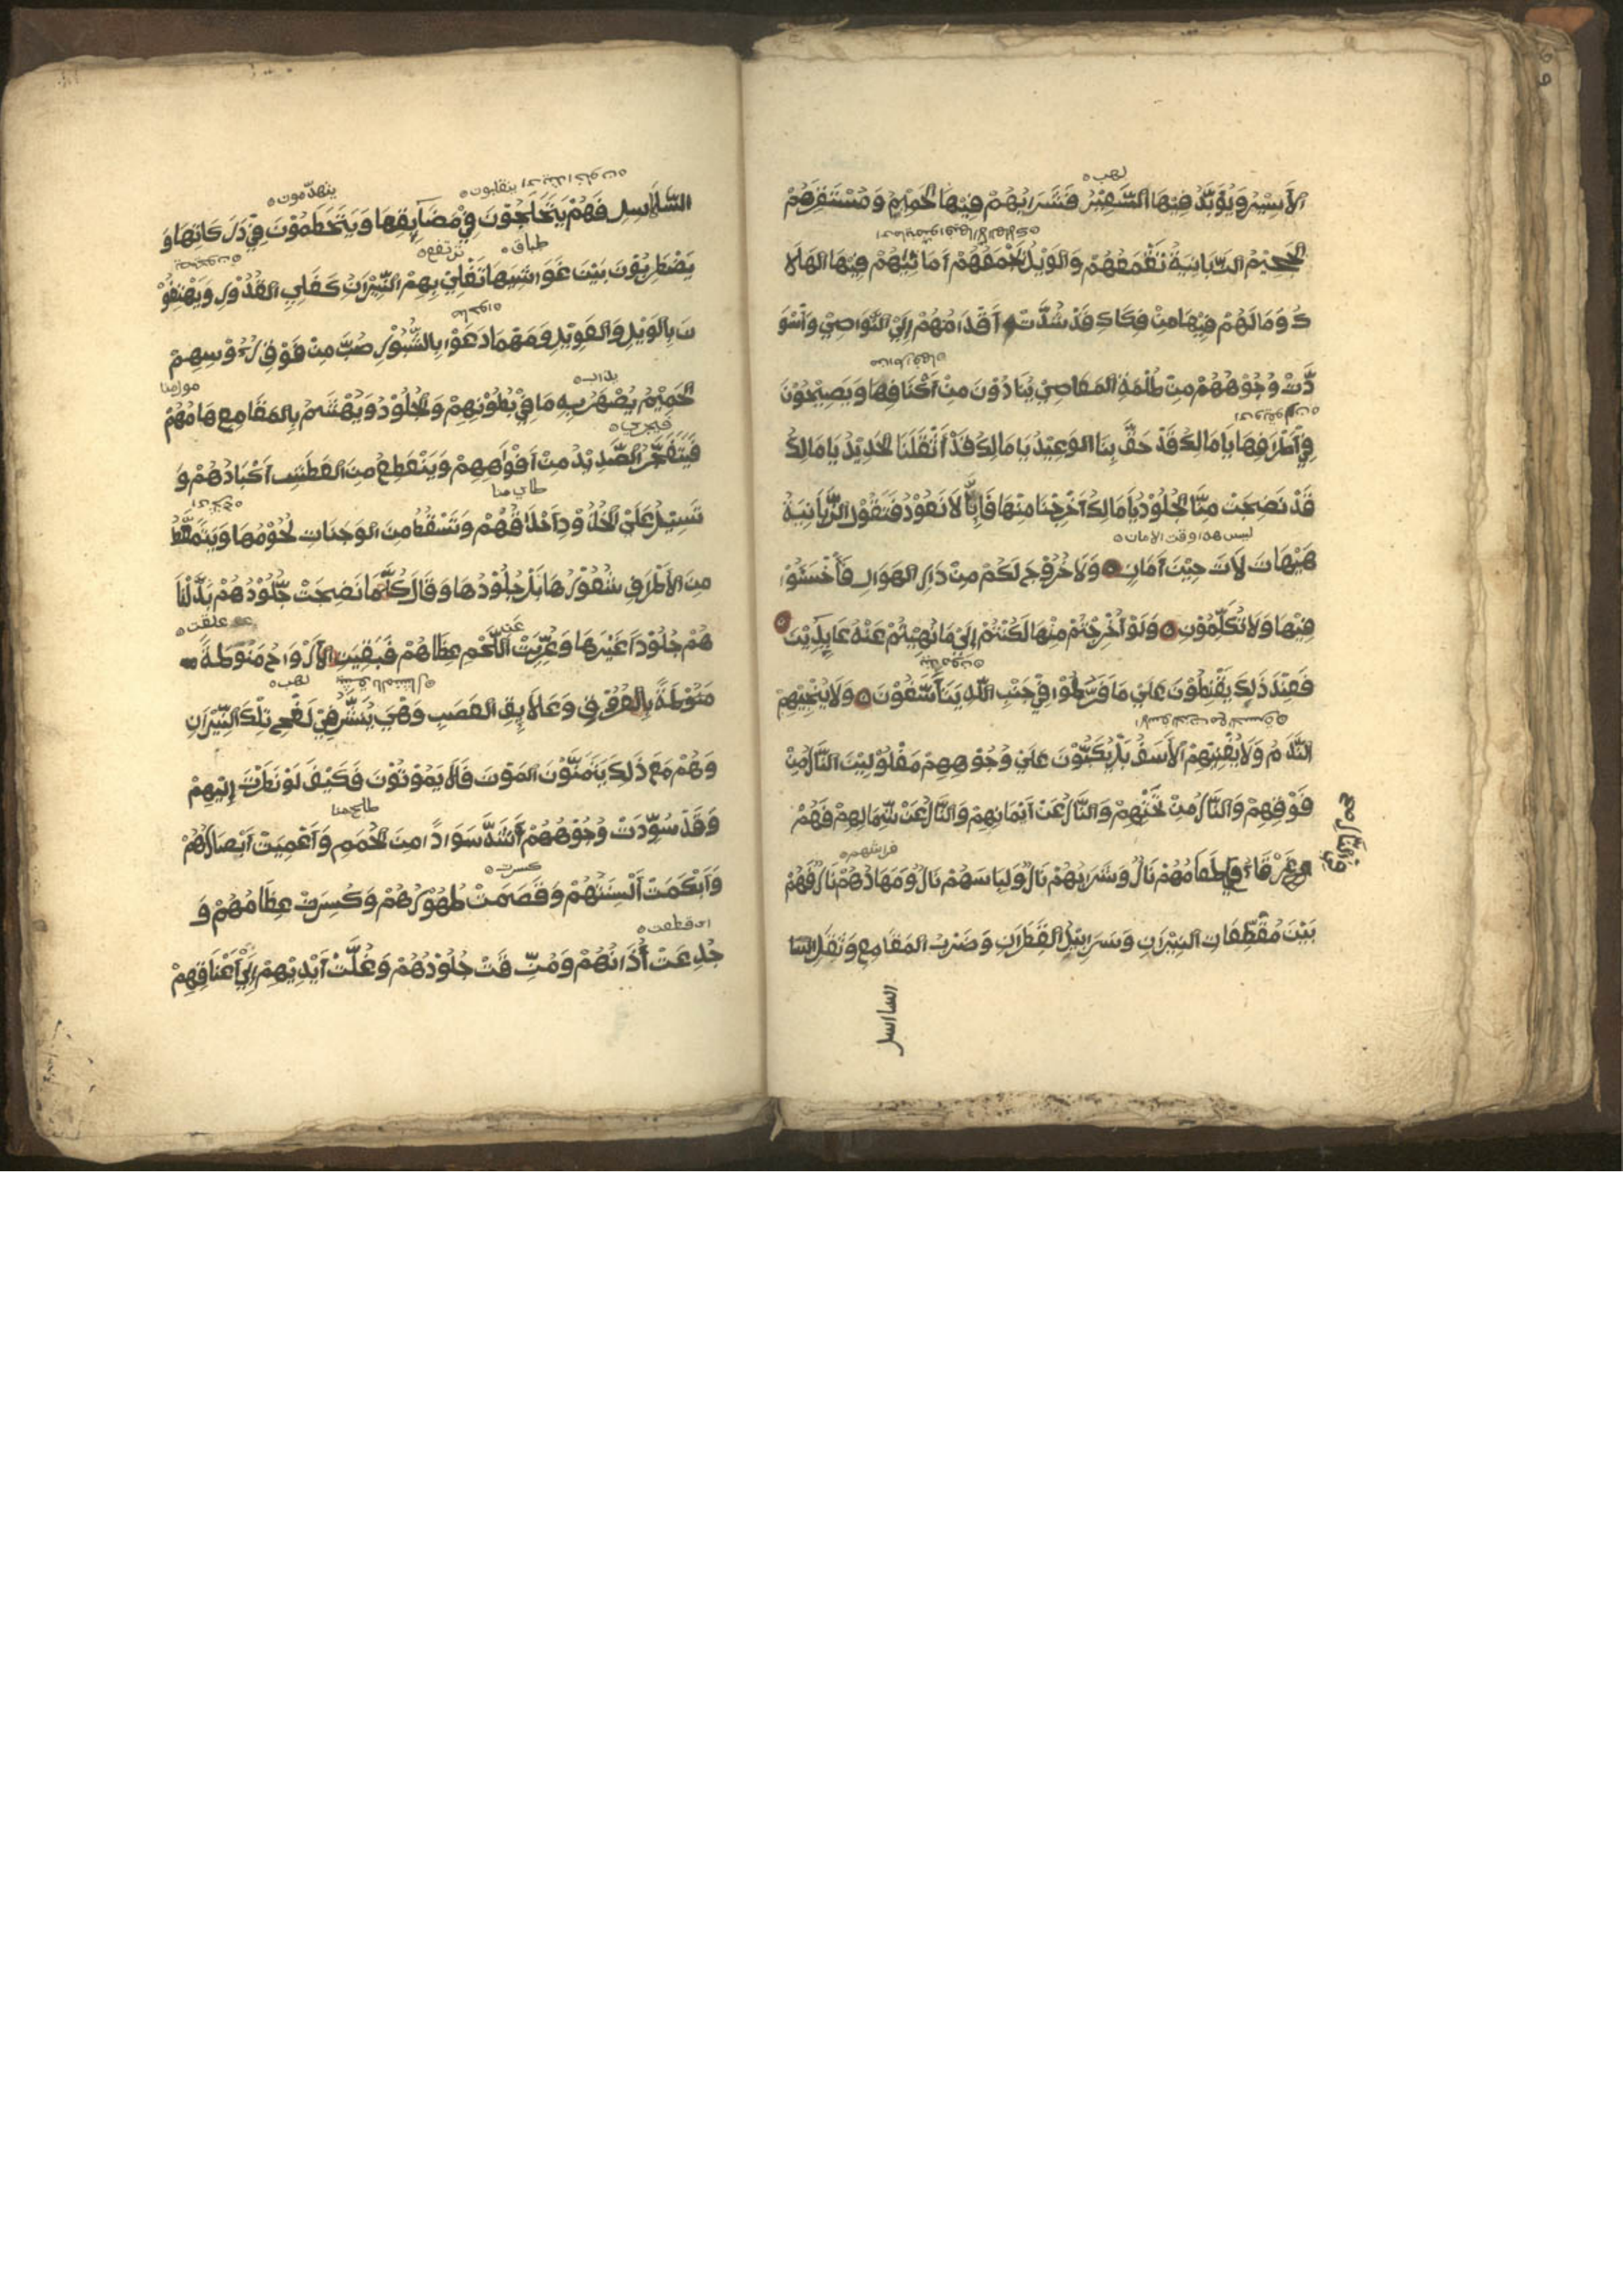 لهب
الأَسِيْرُ وَيُؤَبَّدُ فِيْهَا السَّعِيْرُ فَشَرَابُهُمْ فِيْهَا الْحَمِيْمُ وَمُسْتَقَرُّهُمْ
الْجَحِيْمُ الزَّبَانِيَةُ تَقْمَعُهُمْ وَالْوَيْلُ يَجْمَعُهُمْ أَمَانِيُّهُمْ فِيْهَا الْهَلَا
كُ وَمَالَهُمْ فِيْهَا مِنْ فِكَاكِ قَدْ شُدَّتْ أَقْدَامُهُمْ إِلَيْ النَّوَاصِيْ وَأَسْوَ
دَّتْ وُجُوْهُهُمْ مِنْ ظُلْمَةِ الْمَعَاصِيْ يُنَادُوْنَ مِنْ أَكْنَافِهَا وَيَصِيْحُوْنَ
فِيْ أَطْرَفِهَا يَا مَالِكُ قَدْ حَقَّ بِنَا الْوَعِيْدُ يَا مَالِكُ قَدْ أَثْقَلَنَا الْحَدِيْدُ يَا مَالِكُ
قَدْ نَضِجَتْ مِنَّا الْجُلُوْدُ يَا مَالِكُ أَخْرِجْنَا مِنْهَا فَإِنَّا لَا نَعُوْدُ فَتَقُوْلُ الزَّبَانِيَةُ
ليس هذا وقت الامان
هَيْهَاتَ لَاتَ حِيْنَ أَمَانٍ وَلَا خُرُوْجَ لَكُمْ مِنْ دَارِ الْهَوَانِ فَأَخْسَئُوْا
فِيْهَا وَلَا تُكَلِّمُوْنِ وَلَوْ أُخْرِجْتُمْ مِنْهَا لَكُنْتُمْ إِلَيْ مَا نُهِيْتُمْ عَنْهُ عَايِدِيْنَ
فَعِنْدَ ذَلِكَ يَقْنِطُوْنَ عَلَيْ مَا فَرَّطُوْا فِيْ جَنْبِ اللّٰهِ يَتَأَسَّفُوْنَ وَلَا يُنْجِيْهِمْ
النَّدَمُ وَلَا يُغْنِيْهِمْ الأَسَفُ بَلْ يُكَبُّوْنَ عَلَيْ وُجُوْهِهِمْ مَغْلُوْلِيْنَ النَّارُ مِنْ
فَوْقِهِمْ وَالنَّارُ مِنْ تَحْتِهِمْ وَالنَّارُ عَنْ أَيْمَانِهِمْ وَالنَّارُ عَنْ شِمَالِهِمْ فَهُمْ
في النار صح
فراشهم
غَرْقَا طَعَامُهُمْ نَارٌ وَشَرَابُهُمْ نَارٌ وَلِبَاسَهُمْ نَارٌ وَمَهَادُهُمْ نَارٌ فَهُمْ
بَيْنَ مُقَطِّعَاتِ النِيْرَانِ وَسَرَابِيْلُ الْقَطِرَانِ وَضَرْبِ الْمَقَامِعِ وَثِقَلِ السَّا
السلاسل
ينقلبون
ينهدّمون
السَّلَاسِلِ فَهُمْ يَتَجَلْجَلُوْنَ فِيْ مَضَايِقِهَا وَيَتَحَطَّمُوْنَ فِيْ دَرَكَاتِهَا وَ
طباق
ترتفع
يَضْطَرِبُوْنَ بَيْنَ غَوَاشِيْهَا تَغْلِيْ بِهِمْ النِّيْرَانُ كَغَلْيِ الْقُدُوْرِ وَيَهْتِفُوْ
نَ بِالْوَيْلِ وَالْعَوِيْلِ وَمَهْمَا دَعَوْا بِالثُّبُوْرِ صُبَّ مِنْ فَوْقِ رُءُوْسِهِمْ
يذاب
الْحَمِيْمُ يُصْهَرُ بِهِ مَا فِيْ بُطُوْنِهِمْ وَالْجُلُوْدُ وَيُهْشَمُ بِالْمَقَامِعِ هَامُهُمْ
فيجري
فَيَتَفَجَّرُ الصَّدِيْدُ مِنْ أَفْوَاهِهِمْ وَيَنْقَطِعُ مِنَ الْعَطَشِ أَكْبَادُهُمْ وَ
تَسِيْلُ عَلَيْ الْخُدُوْدِ أَحْدَاقُهُمْ وَتَسْقُطُ مِنَ الْوَجَنَاتِ لُحُوْمُهَا وَيَتَمَعَّطُ
مِنَ الأَطْرَفِ شُعُوْرُهَا بَلْ جُلُوْدُهَا وَقَالَ كُلَّمَا نَضِجَتْ جُلُوْدُهُمْ بَدَّلْنَا
علقت
هُمْ جُلُوْدًا غَيْرَهَا وَعُرِّيَتْ اللَّحْمِ عِظَامُهُمْ فَبَقِيَتِ الأَرْوَاحُ مَنُوْطَةً
لهب
مَنُوْطَةً بِالْعُرُوْقِ وَعَلَايِقِ الْعَصَبِ وَهْيَ يُنَشَّرُ فِيْ لَفْحِ تِلْكَ النِّيْرَانِ
وَهُمْ مَعَ ذَلِكَ يَتَمَنَّوْنَ الْمَوْتَ فَلَا يَمُوْتُوْنَ فَكَيْفَ لَوْ نَظَرْتَ إِلَيْهِمْ
وَقَدْ سُوِّدَتْ وُجُوْهُهُمْ أَشَدَّ سَوَادًا مِنَ الْحُمَمِ وَأَعْمِيَتْ أَبْصَارُهُمْ
كسرت
وَأَبْكَمَتْ أَلْسِنَتُهُمْ وَقَصَمَتْ ظُهُوْرُهُمْ وَكُسِرَتْ عِظَامُهُمْ وَ
اى قطعت
جُدِعَتْ أُذَانُهُمْ وَمُزِّقَتْ جُلُوْدُهُمْ وَغُلَّتْ أَيْدِيْهِمْ إِلَيْ أَعْنَاقِهِمْ